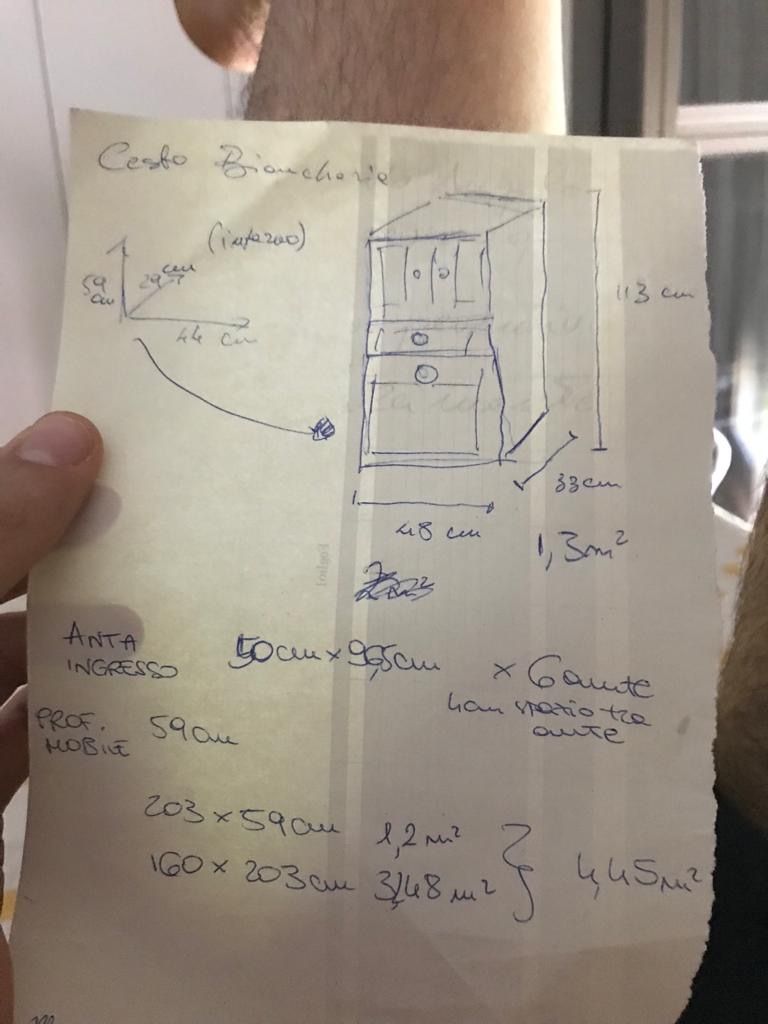 Cesto Biancheria
(interno)
59 cm
29 cm
44 cm
113 cm
33 cm
48 cm
1,3 m²
ANTA INGRESSO
50 cm × 96,5 cm
× 6 ante
4 cm spazio tra
ante
PROF. MOBILE
59 cm
203 × 59 cm 1,2 m²
160 × 203 cm 3,48 m²
4,45 m²